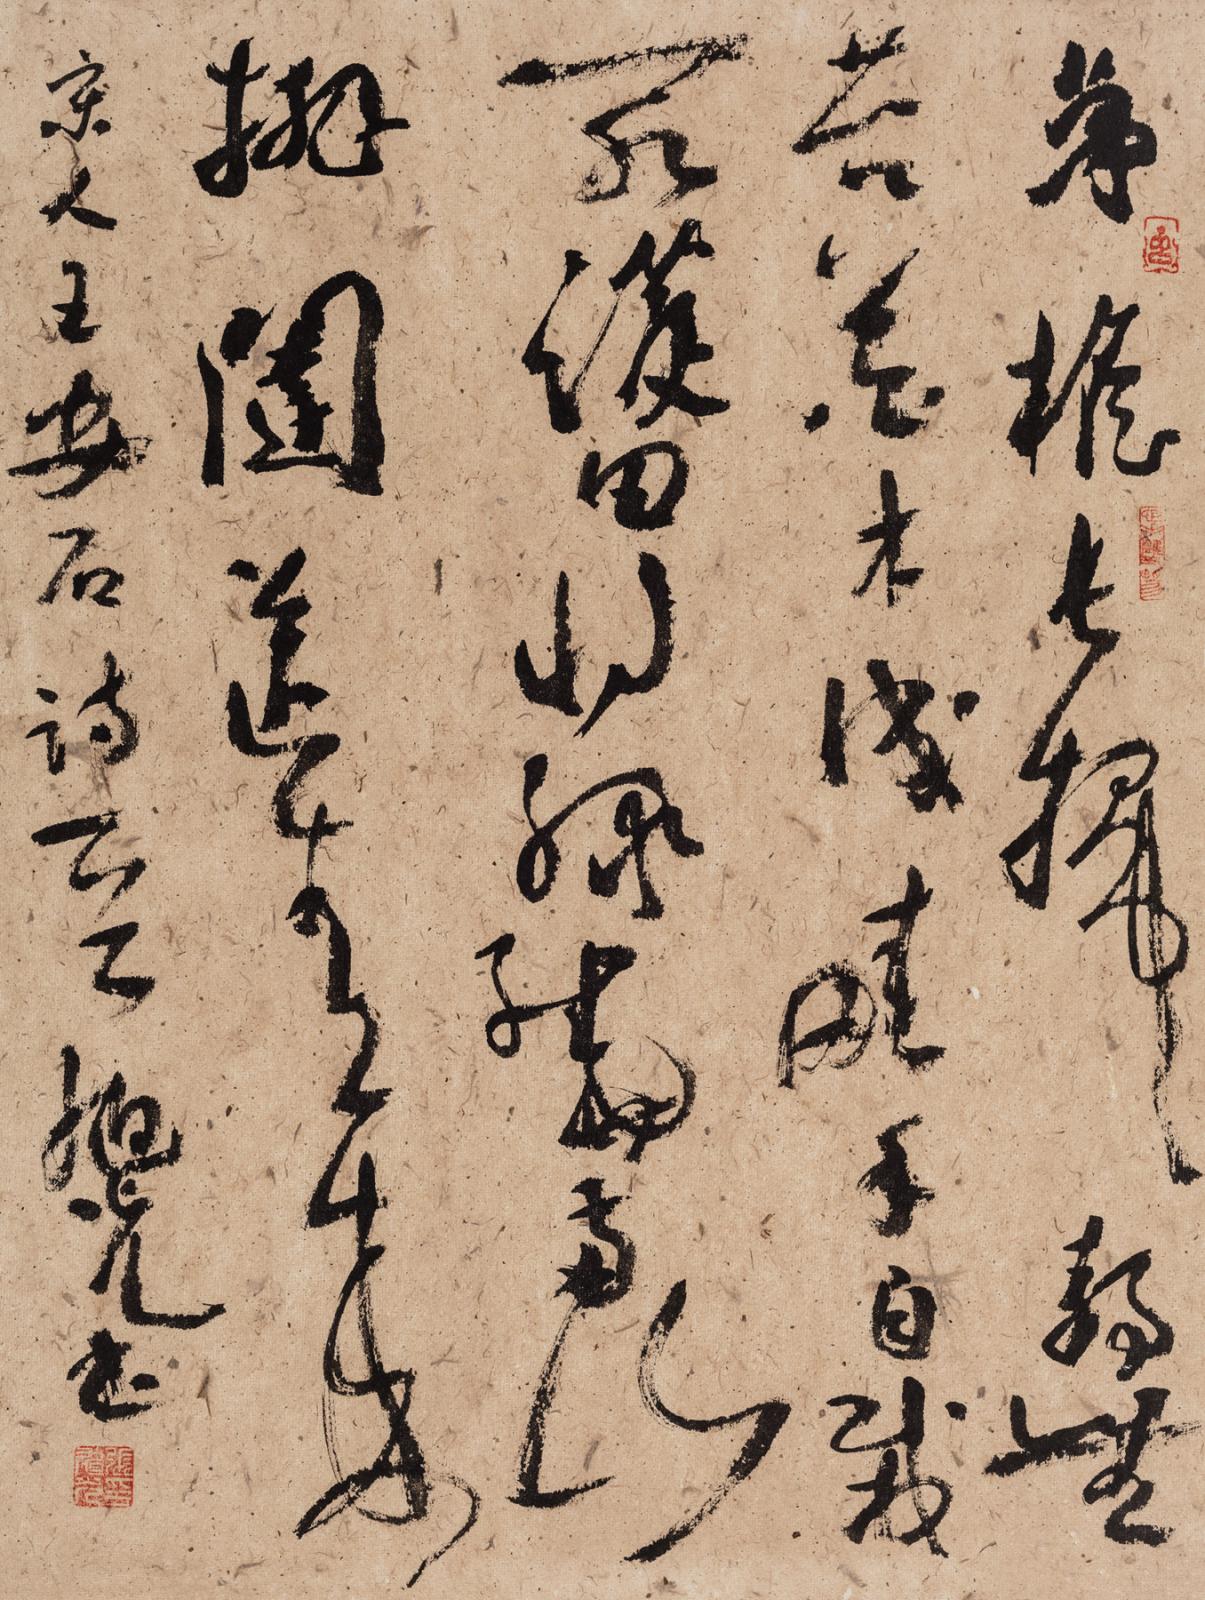 茅檐長掃靜無
苔花木成畦手自栽
一水護田將綠繞兩山
排闥送青來
宋人王安石詩云云 書